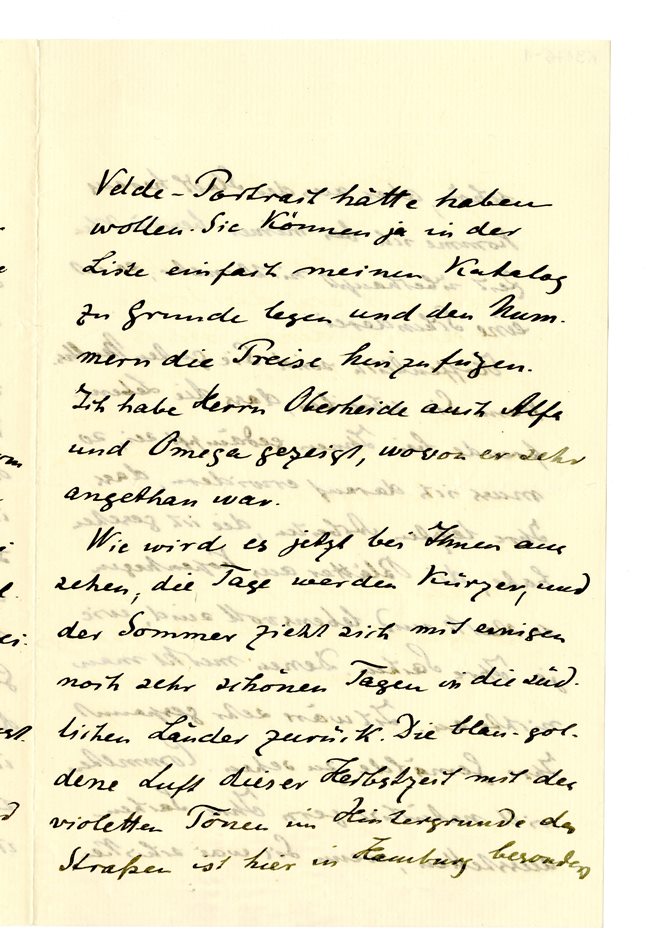 Velde-Portrait hätte haben
wollen. Sie können ja in der
Liste einfach meinen Katalog
zu Grunde legen und den Num-
mern die Preise hinzufügen.
Ich habe Herrn Oberheide auch Alfa
und Omega gezeigt, wovon er sehr
angethan war.
Wie wird es jetzt bei Ihnen aus
sehen, die Tage werden kürzer, und
der Sommer zieht sich mit einigen
noch sehr schönen Tagen in die süd-
lichen Länder zurück. Die blau-gol-
dene Luft dieser Herbstzeit mit den
violetten Tönen im Hintergrunde der
Straßen ist hier in Hamburg besonders